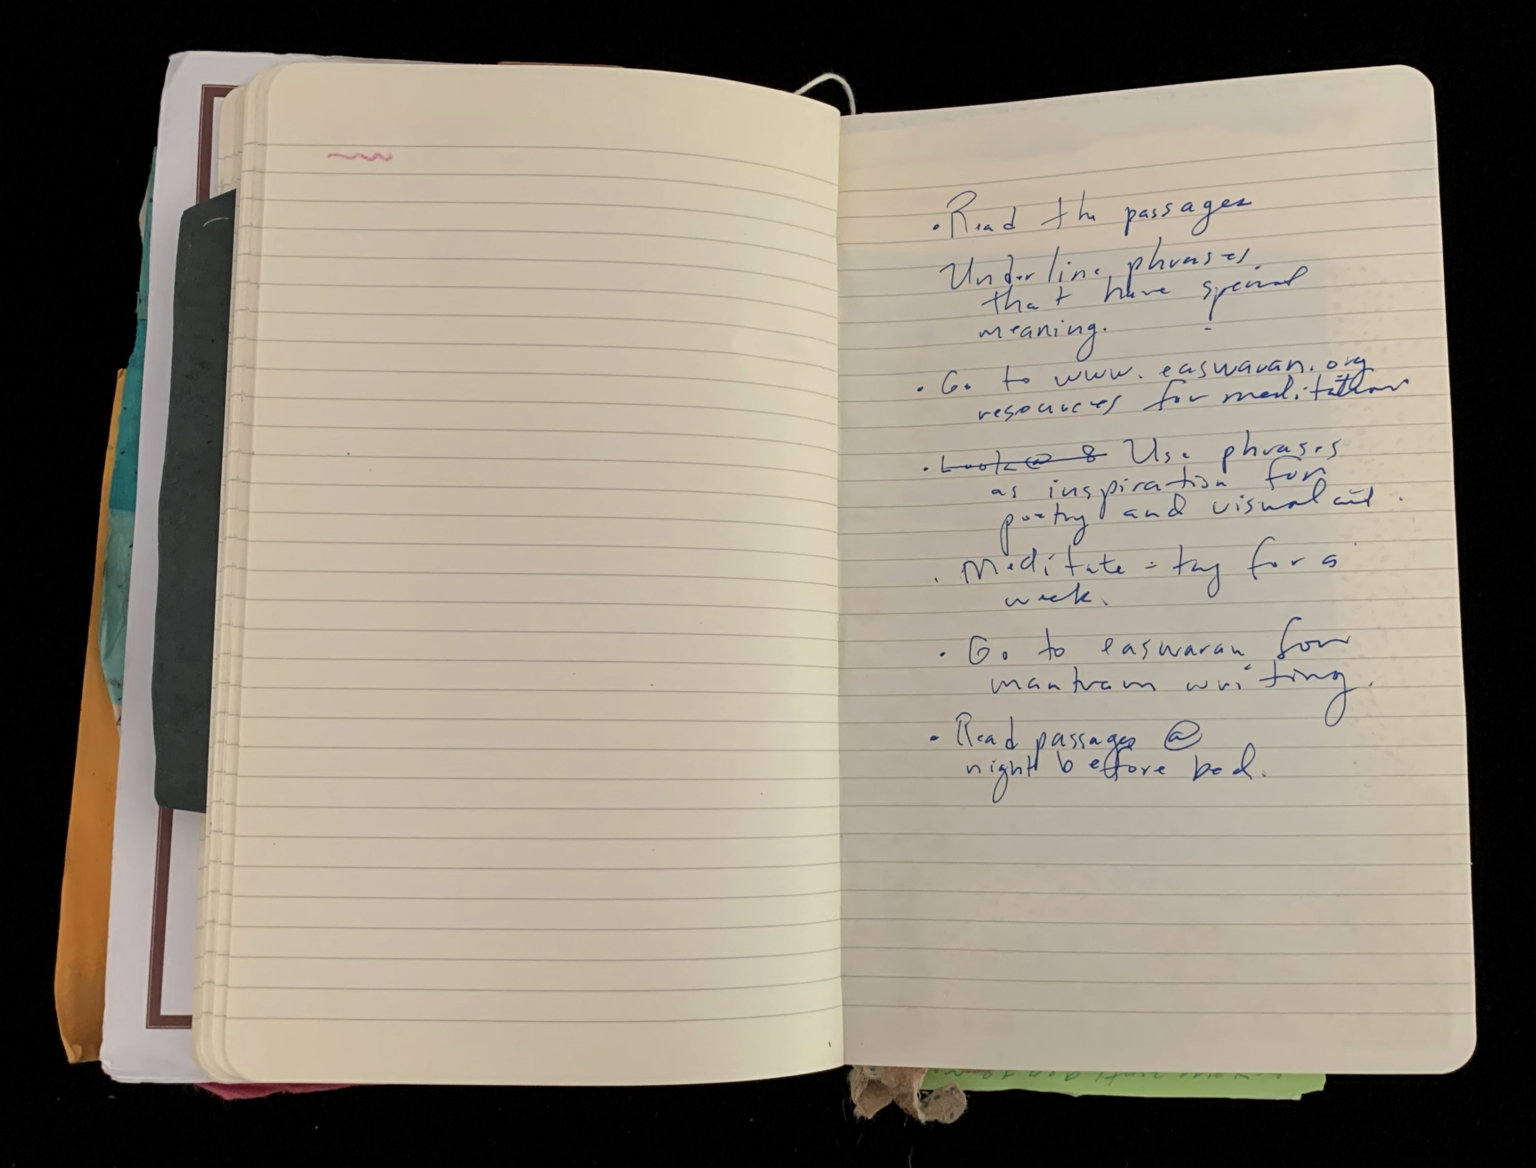 • Read the passages
Underline phrases
that have special
meaning.
• Go to www.easwaran.org
resources for meditation
• Look @ 8 Use phrases
as inspiration for
poetry and visual art.
• Meditate - try for a
week.
• Go to easwaran for
mantram writing.
• Read passages @
night before bed.